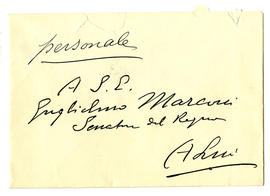 personale
A S. E.
Guglielmo Marconi
Senatore del Regno